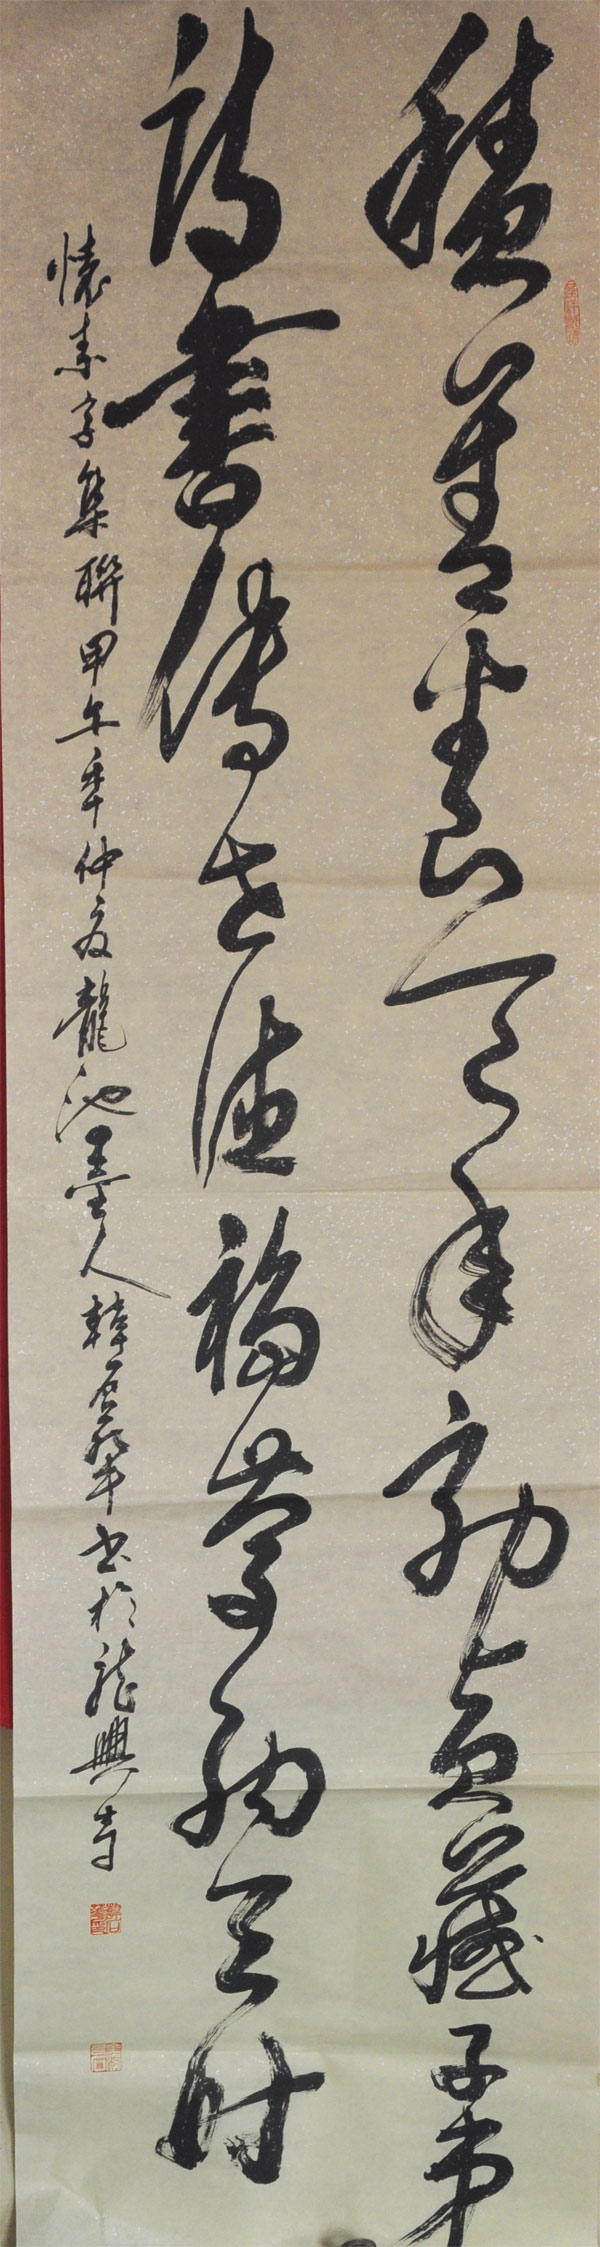 積善養天年勤貞藏子弟
詩書傳世德福慶納天時
懷素字集聯甲午年仲夏龍池墨人韓書於龍興寺